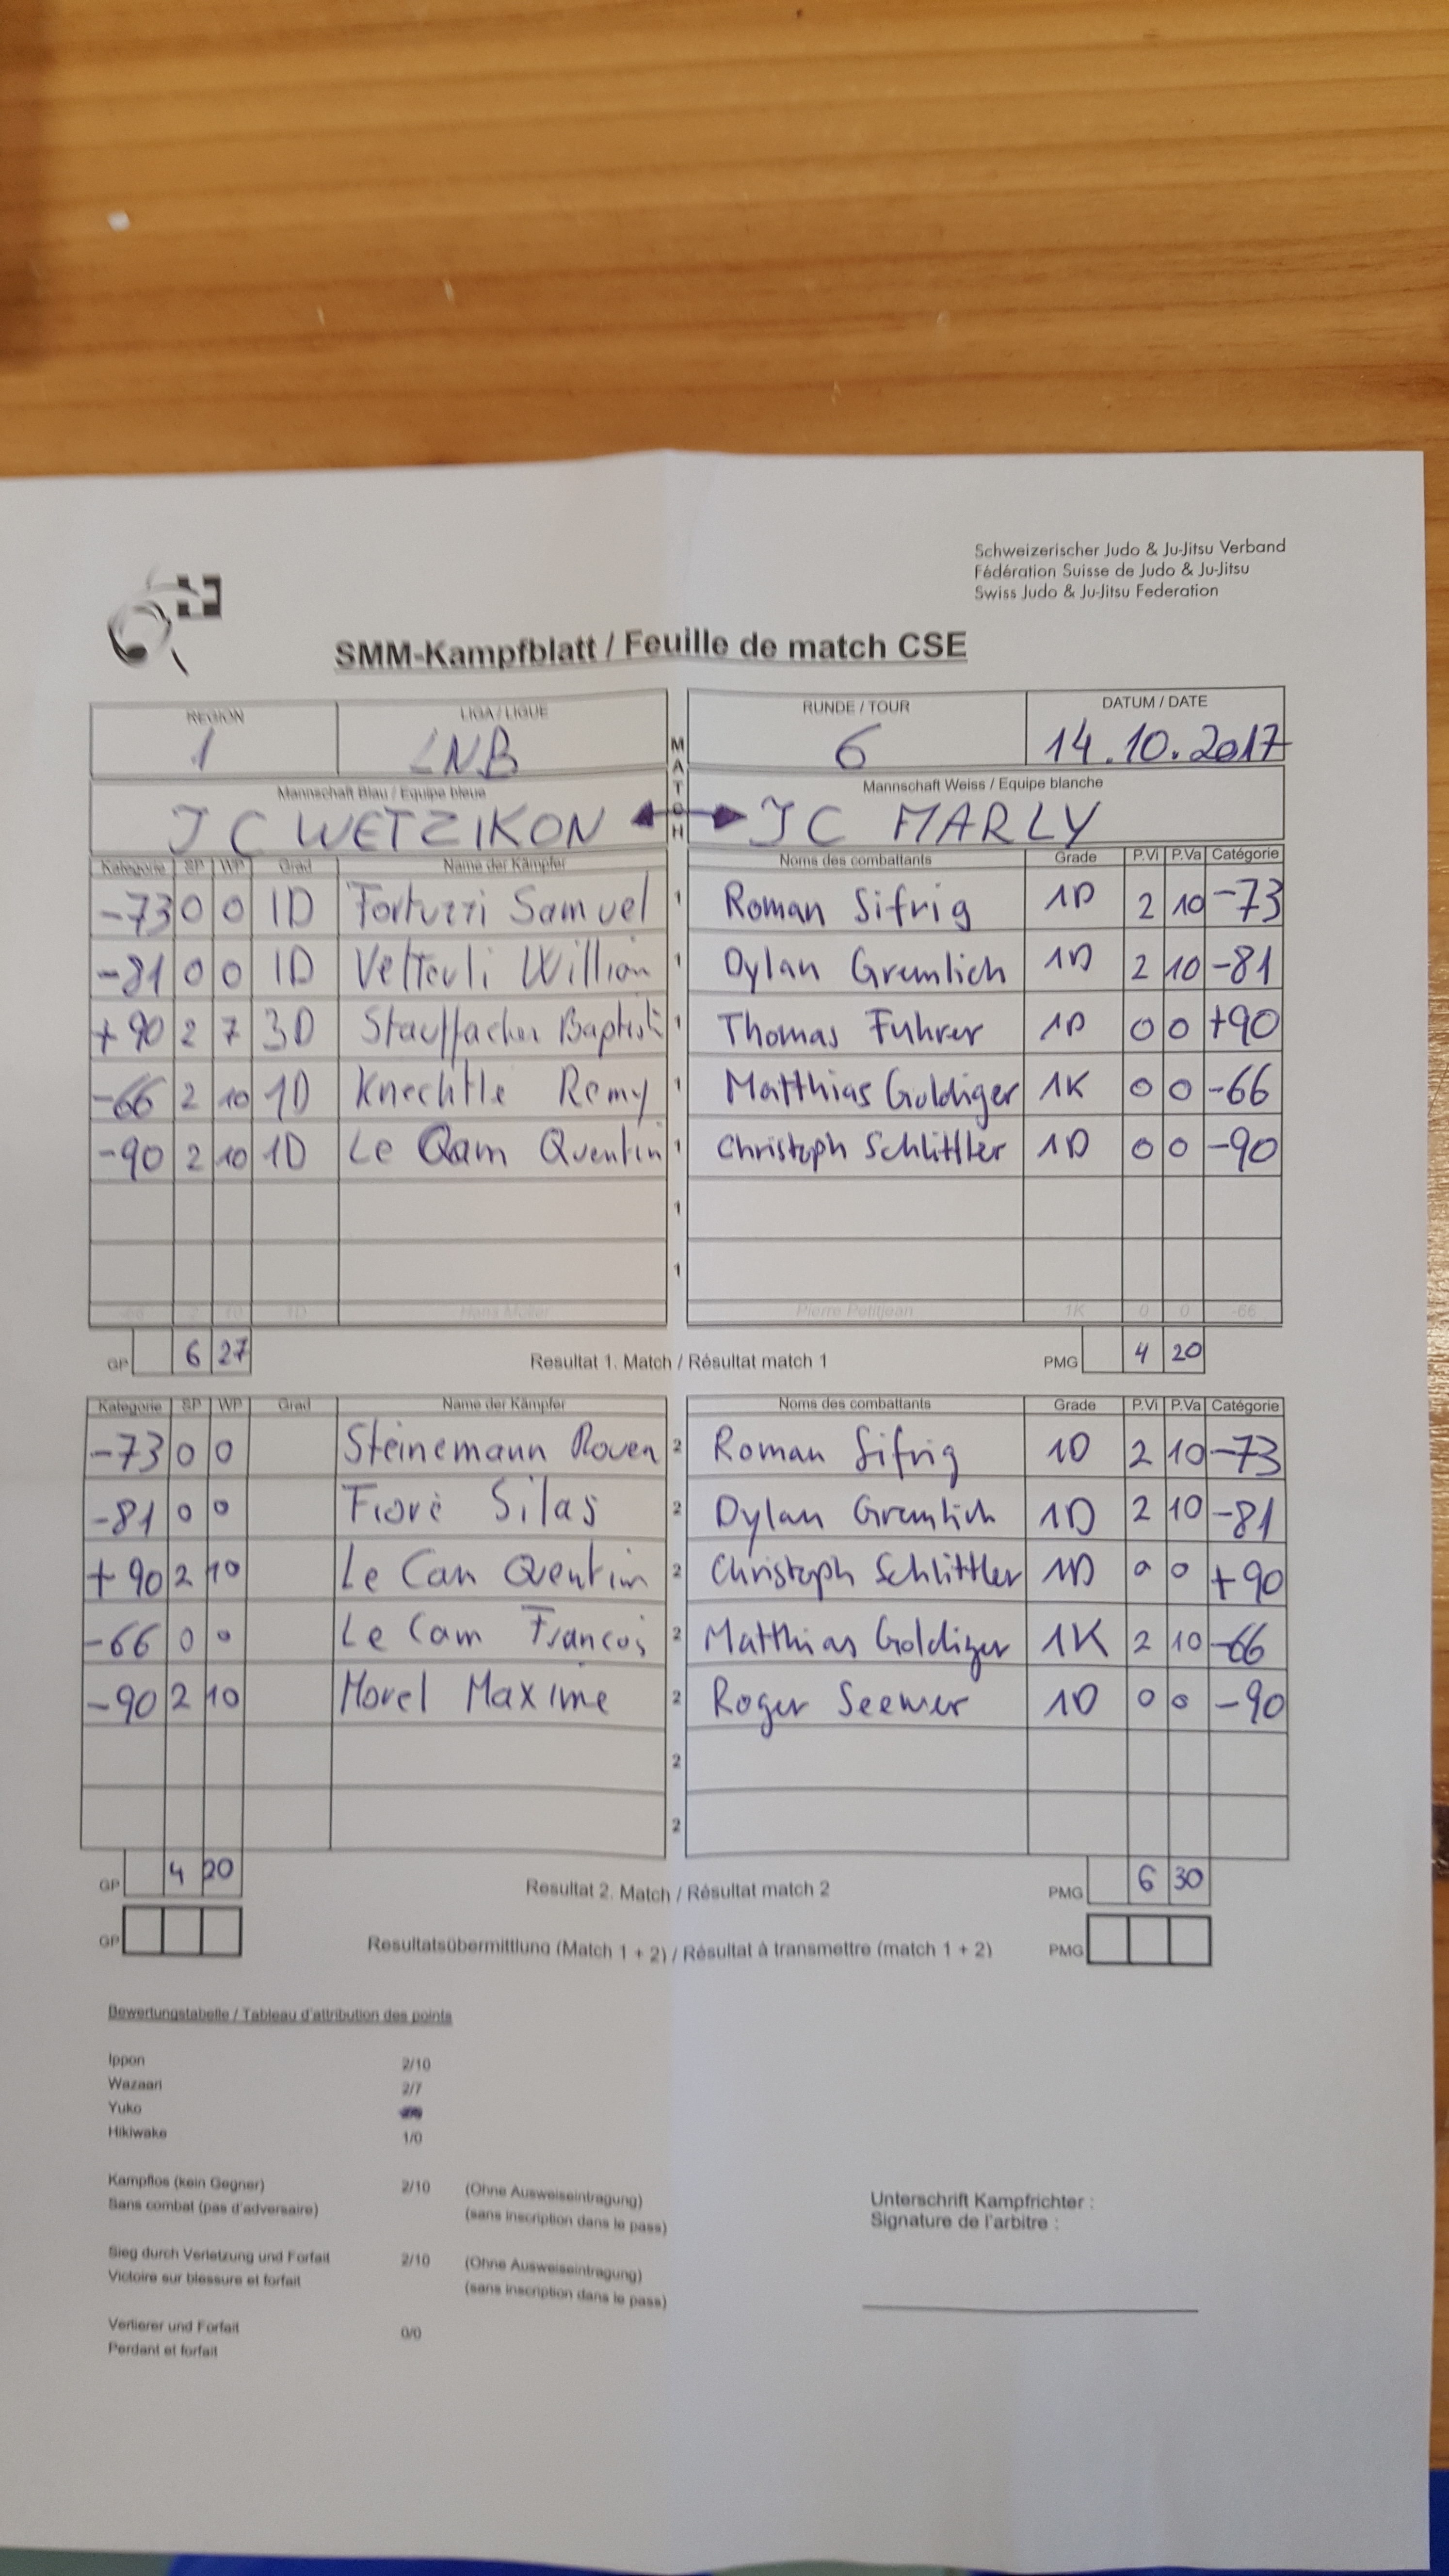 Schweizerischer Judo & Ju-Jitsu Verband
Fédération Suisse de Judo & Ju-Jitsu
Swiss Judo & Ju-Jitsu Federation
SMM-Kampfblatt / Feuille de match CSE
REGION LIGA / LIGUE RUNDE / TOUR DATUM / DATE
1 LNB 6 14.10.2017
Mannschaft Blau / Equipe bleue MATCH Mannschaft Weiss / Equipe blanche
JC WETZIKON JC MARLY
Kategorie SP WP Grad Name der Kämpfer Noms des combattants Grade P.Vi P.Va Catégorie
-73 0 0 1D Samuel 1 Roman Sifrig 1D 2 10 -73
-81 0 0 1D 1 Dylan Gremlich 1D 2 10 -81
+90 2 7 3D Stauffacher 1 Thomas Fuhrer 1D 0 0 +90
-66 2 10 1D Knechtle Remy 1 Matthias Goldiger 1K 0 0 -66
-90 2 10 1D Le Qam Quentin 1 Christoph Schlittler 1D 0 0 -90
1
1
-66 2 10 1D Hans Müller Pierre Petitjean 1K 0 0 -66
GP 6 27 Resultat 1. Match / Résultat match 1 PMG 4 20
Kategorie SP WP Grad Name der Kämpfer Noms des combattants Grade P.Vi P.Va Catégorie
-73 0 0 Steinemann 2 Roman Sifrig 1D 2 10 -73
-81 0 0 Fiore Silas 2 Dylan Gremlich 1D 2 10 -81
+90 2 10 Le Cam Quentin 2 Christoph Schlittler 1D 0 0 +90
-66 0 0 Le Cam Francois 2 Matthias Goldiger 1K 2 10 -66
-90 2 10 Morel Maxime 2 Roger Seewer 1D 0 0 -90
2
2
GP 4 20 Resultat 2. Match / Résultat match 2 PMG 6 30
GP Resultatsübermittlung (Match 1 + 2) / Résultat à transmettre (match 1 + 2) PMG
Bewertungstabelle / Tableau d'attribution des points
Ippon 2/10
Wazaari 2/7
Yuko
Hikiwake 1/0
Kampflos (kein Gegner) 2/10 (Ohne Ausweiseintragung)
Sans combat (pas d'adversaire) (sans inscription dans le pass)
Unterschrift Kampfrichter :
Signature de l'arbitre :
Sieg durch Verletzung und Forfait 2/10 (Ohne Ausweiseintragung)
Victoire sur blessure et forfait (sans inscription dans le pass)
Verlierer und Forfait 0/0
Perdant et forfait